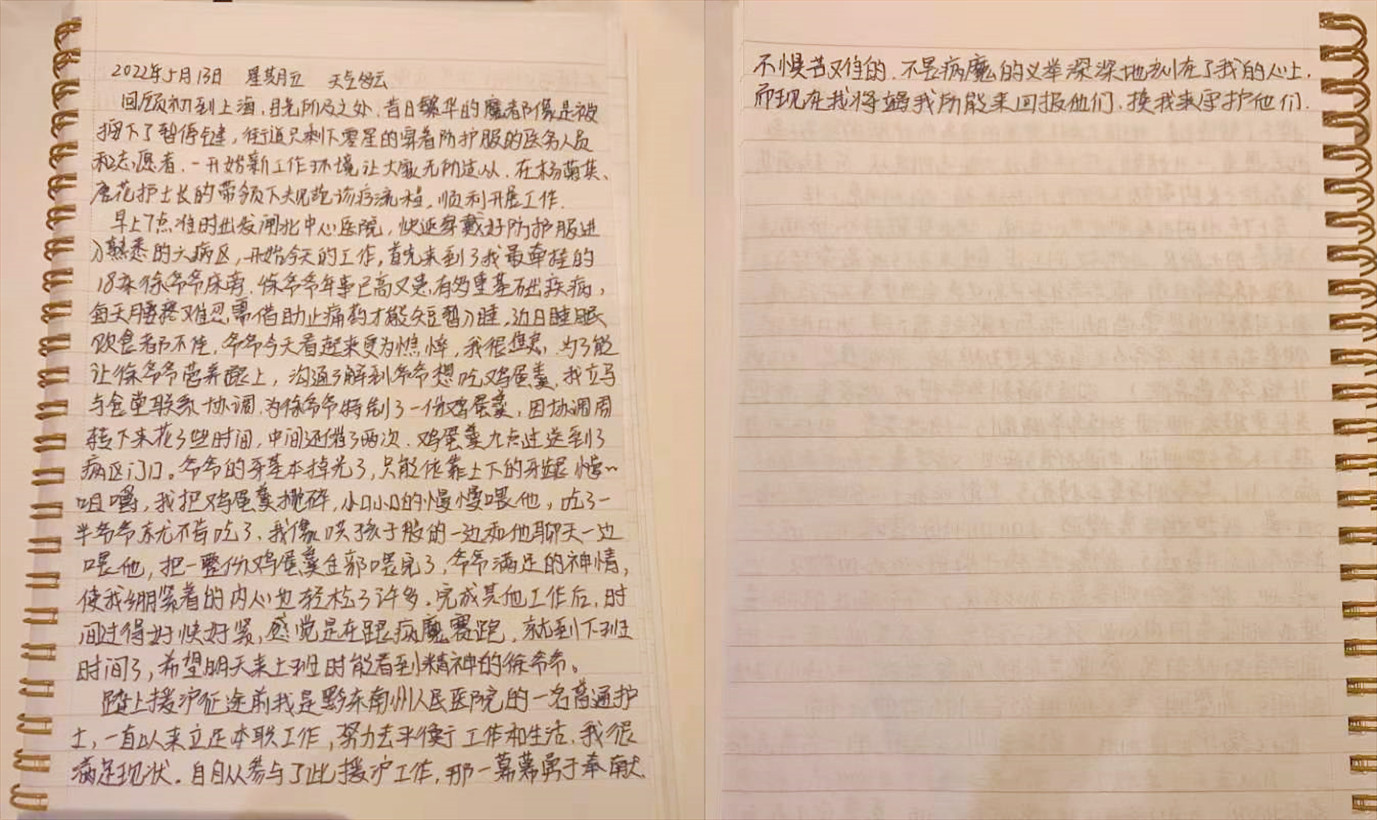 2022年5月13日 星期五 天气多云
回顾初到上海,目光所及之处,昔日繁华的魔都像是被
摁下了暂停键,街道只剩下零星的穿着防护服的医务人员
和志愿者.一开始新工作环境让大家无所适从.在杨菊英、
唐花护士长的带领下规范诊疗流程,顺利开展工作.
早上7点准时出发闸北中心医院,快速穿戴好防护服进
入熟悉的六病区,开始今天的工作,首先来到了我最牵挂的
18床徐爷爷床旁.徐爷爷年事已高又患有多重基础疾病,
每天腰疼难忍需借助止痛药才能短暂入睡,近日睡眠
饮食都不佳,爷爷今天看起来更为憔悴,我很焦急.为了能
让徐爷爷营养跟上,沟通了解到爷爷想吃鸡蛋羹.我立马
与食堂联系协调.为徐爷爷特制了一份鸡蛋羹,因协调周
转下来花了些时间,中间还催了两次.鸡蛋羹九点过送到了
病区门口。爷爷的牙基本掉光了,只能依靠上下的牙龈慢慢
咀嚼,我把鸡蛋羹搅碎,小口小口的慢慢喂他,吃了一
半爷爷就不肯吃了,我像哄孩子般的一边和他聊天一边
喂他,把一整份鸡蛋羹全部喂完了,爷爷满足的神情,
使我绷紧着的内心也轻松了许多.完成其他工作后,时
间过得好快好紧,感觉是在跟病魔赛跑,就到下班
时间了,希望明天来上班时能看到精神的徐爷爷。
踏上援沪征途前我是黔东南州人民医院的一名普通护
士,一直以来立足本职工作,努力去平衡于工作和生活.我很
满足现状.自从参与了此援沪工作,那一幕幕勇于奉献
不惧苦难的.不畏病魔的义举深深地刻在了我的心上.
而现在我将竭我所能来回报他们.换我来守护他们.